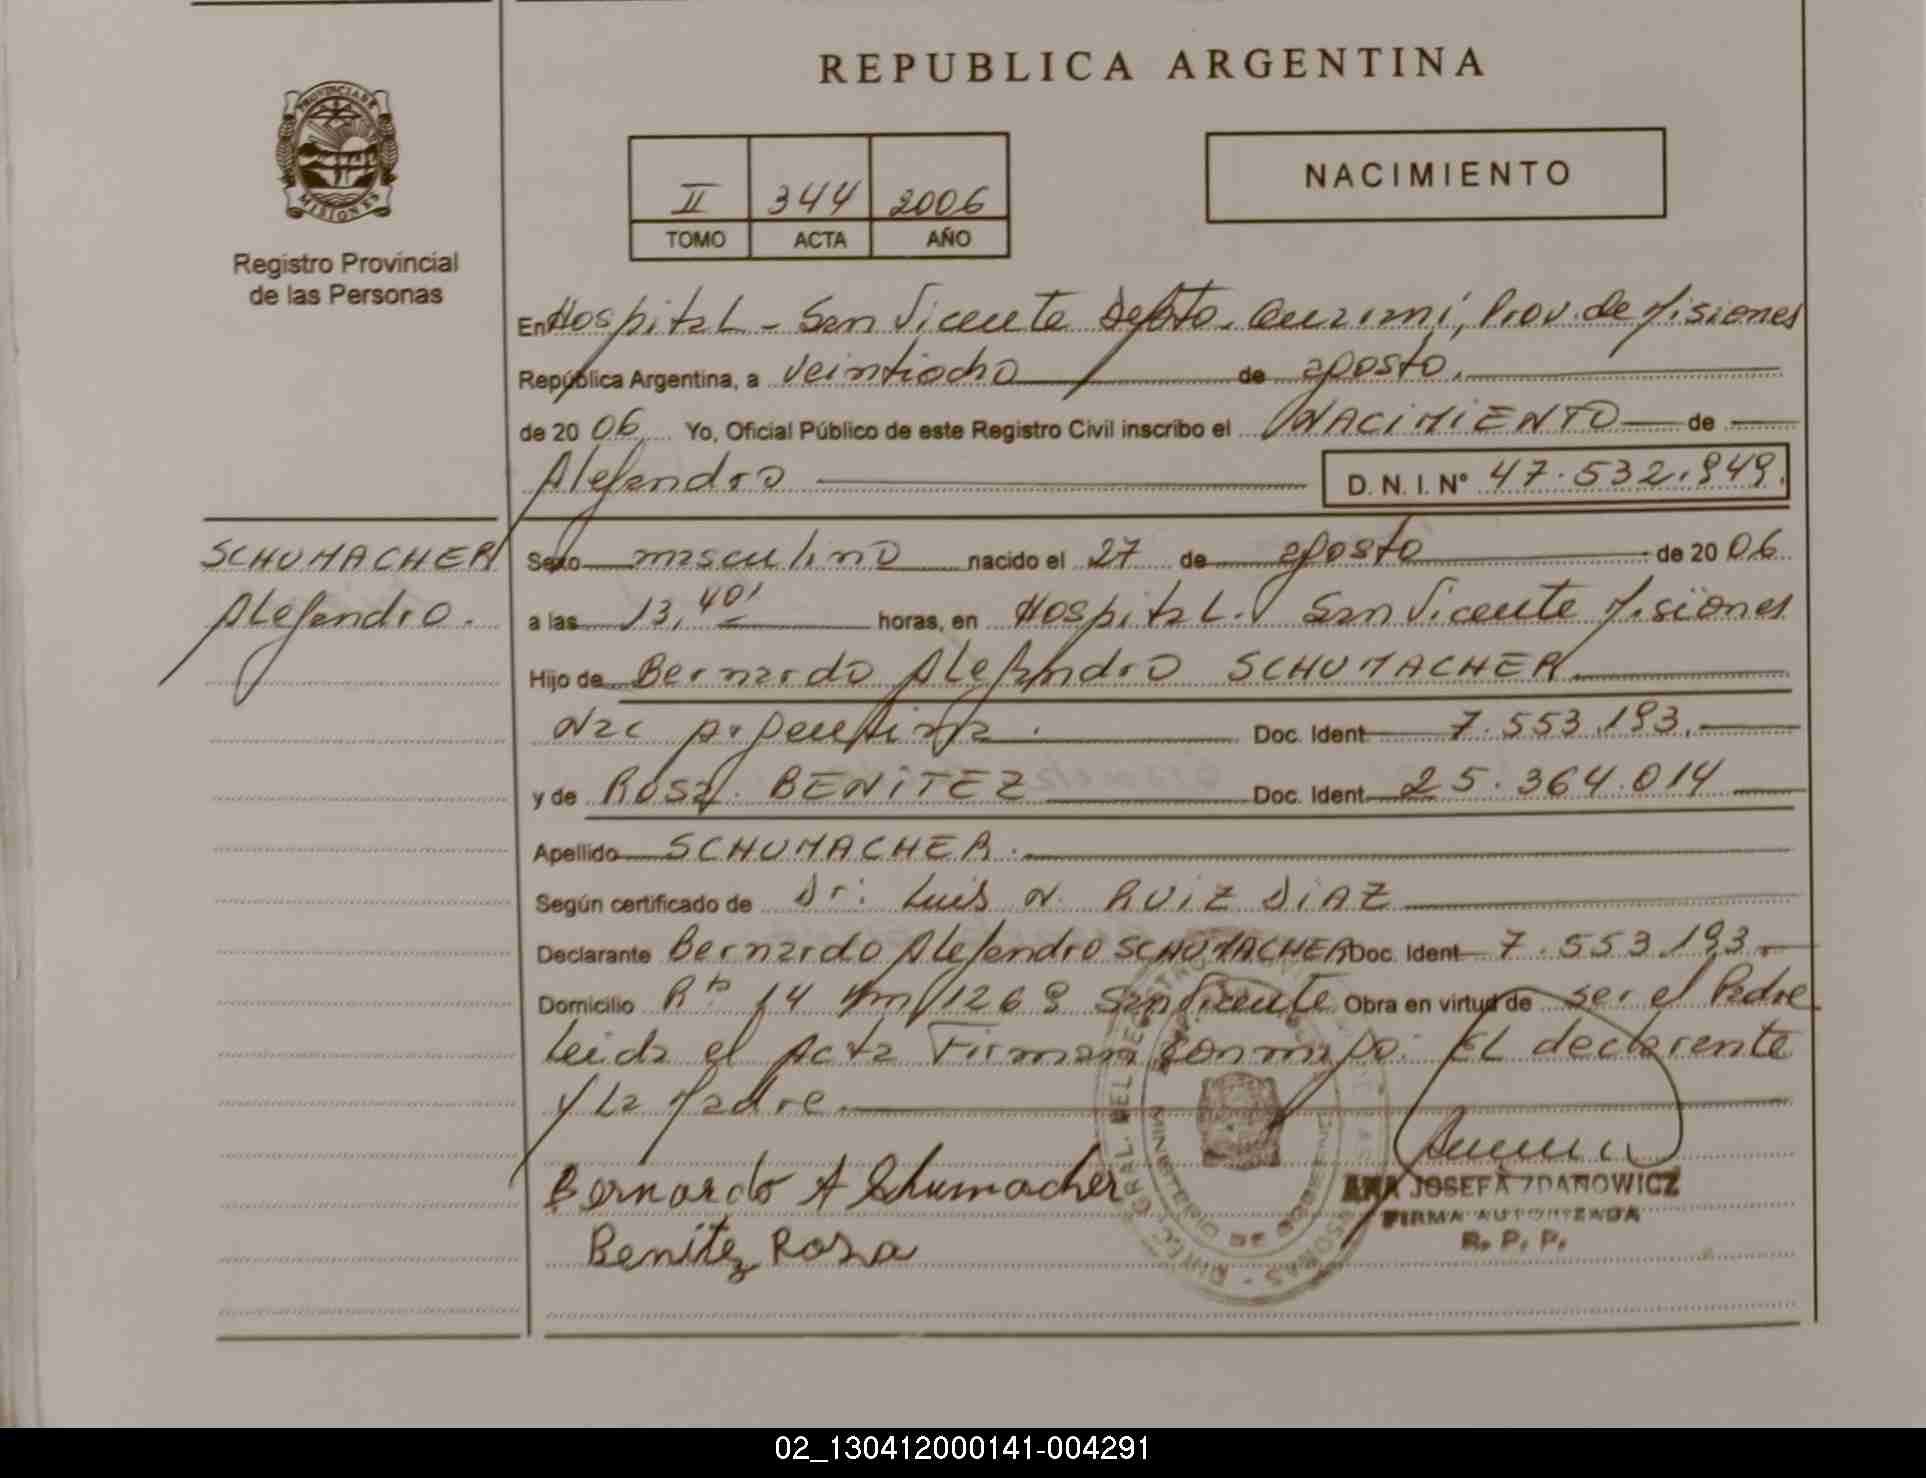 REPUBLICA ARGENTINA
PROVINCIA DE
MISIONES
Registro Provincial
de las Personas
II 344 2006
TOMO ACTA AÑO
NACIMIENTO
En Hospital - San Vicente Depto. Guaraní, Prov. de Misiones
República Argentina, a veintiocho de agosto.
de 2006. Yo, Oficial Público de este Registro Civil inscribo el NACIMIENTO de
Alejandro D. N. I. Nº 47.532.949.
SCHUMACHER
Alejandro.
Sexo masculino nacido el 27 de agosto de 2006.
a las 13,40' horas, en Hospital. San Vicente Misiones
Hijo de Bernardo Alejandro SCHUMACHER
Nac Argentina. Doc. Ident 7.553.193.
y de Rosa. BENiTEZ Doc. Ident 25.364.014
Apellido SCHUMACHER.
Según certificado de Dr: Luis N. RUiZ DiAZ
Declarante Bernardo Alejandro SCHUMACHER Doc. Ident 7.553.193.
Domicilio Rta 14 Km 1269 San Vicente Obra en virtud de ser el Padre
Leida el Acta Firman conmigo: El declarante
y La Madre.
Bernardo A Schumacher
Benitez Rosa
ANA JOSEFA ZDANOWICZ
FIRMA AUTORIZADA
R. P. P.
02_130412000141-004291